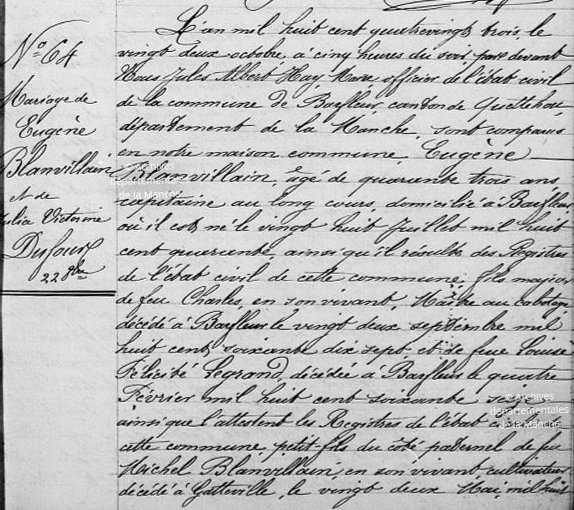 N° 64
Mariage de
Eugène
Blanvillain
et de
Julia Victorine
Dufour
22 8bre
L'an mil huit cent quatrevingt trois, le
vingt deux octobre, à cinq heures du soir, par devant
Nous Jules Albert Hay Maire officier de l'état civil
de la commune de Barfleur canton de Quettehou,
département de la Manche, sont comparus
en notre maison commune, Eugène
Blanvillain, âgé de quarante trois ans,
capitaine au long cours, domicilié à Barfleur
où il est né le vingt huit Juillet mil huit
cent quarante, ainsi qu'il résulte des Registres
de l'état civil de cette commune; fils majeur
de feu Charles, en son vivant, Maître au cabotage
décédé à Barfleur le vingt deux septembre mil
huit cent soixante dix sept, et de feue Louise
Félicité Legrand, décédée à Barfleur le quatre
Février mil huit cent soixante seize
ainsi que l'attestent les Registres de l'état civil de
cette commune, petit-fils du côté paternel de feu
Michel Blanvillain, en son vivant cultivateur
décédé à Gatteville, le vingt deux Mai, mil huit
© archives
départementales
de la Manche